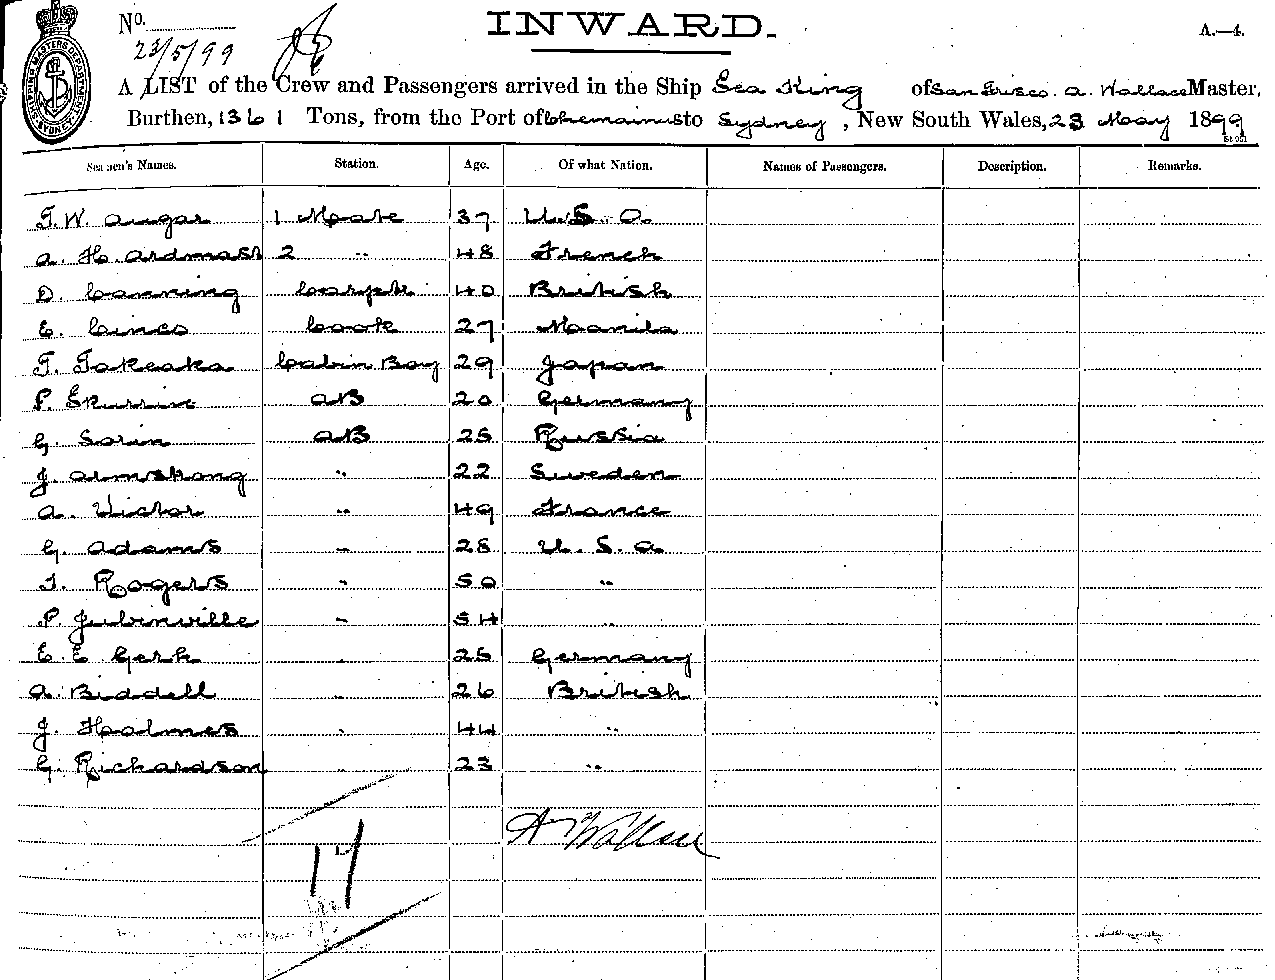 No.
23/5/99
INWARD.
A.—4.
A LIST of the Crew and Passengers arrived in the Ship Sea King of San Frisco. A. Wallace Master,
Burthen, 1361 Tons, from the Port of Chemainus to Sydney, New South Wales, 23 May 1899
Seamen's Names. Station. Age. Of what Nation. Names of Passengers. Description. Remarks.
T. W. Augar 1 Mate 37 U. S. A.
A. H. 2 " 48 French
D. Canning Carptr 40 British
E. Cinco Cook 27 Manila
T. Takeaka Cabin Boy 29 Japan
P. AB 20 Germany
G. Sorin AB 25 Russia
J. Armstrong " 22 Sweden
A. Victor " 49 France
G. Adams " 28 U. S. A
T. Rogers " 50 "
P. Jubinville " 54 "
E. E Gerk " 25 Germany
A. Biddell " 26 British
J. Holmes " 44 "
G. Richardson " 23 "
A Wallace
17